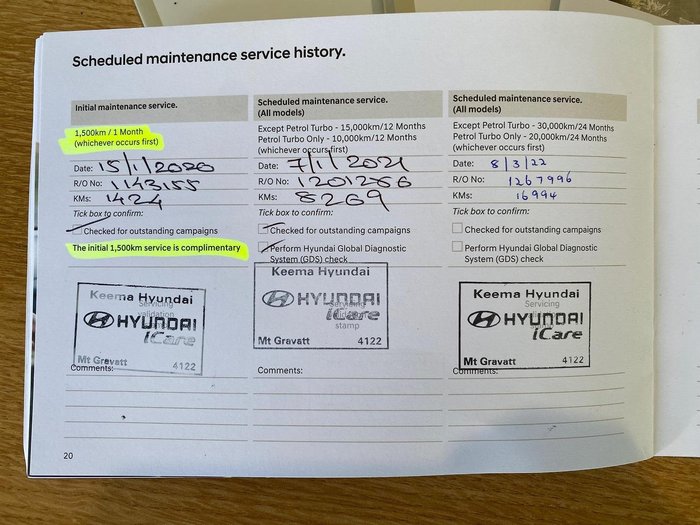 Scheduled maintenance service history.
Initial maintenance service.
1,500km / 1 Month
(whichever occurs first)
Date: 15/1/2020
R/O No: 1143155
KMs: 1424
Tick box to confirm:
Checked for outstanding campaigns
The initial 1,500km service is complimentary
Keema Hyundai
Servicing
validation
HYUNDAI
iCare
Mt Gravatt 4122
Comments:
Scheduled maintenance service.
(All models)
Except Petrol Turbo - 15,000km/12 Months
Petrol Turbo Only - 10,000km/12 Months
(whichever occurs first)
Date: 7/1/2021
R/O No: 1201286
KMs: 8269
Tick box to confirm:
Checked for outstanding campaigns
Perform Hyundai Global Diagnostic
System (GDS) check
Keema Hyundai
Servicing
HYUNDAI
iCare
stamp
Mt Gravatt 4122
Comments:
Scheduled maintenance service.
(All models)
Except Petrol Turbo - 30,000km/24 Months
Petrol Turbo Only - 20,000km/24 Months
(whichever occurs first)
Date: 8/3/22
R/O No: 1267996
KMs: 16994
Tick box to confirm:
Checked for outstanding campaigns
Perform Hyundai Global Diagnostic
System (GDS) check
Keema Hyundai
Servicing
HYUNDAI
iCare
Mt Gravatt 4122
Comments:
20